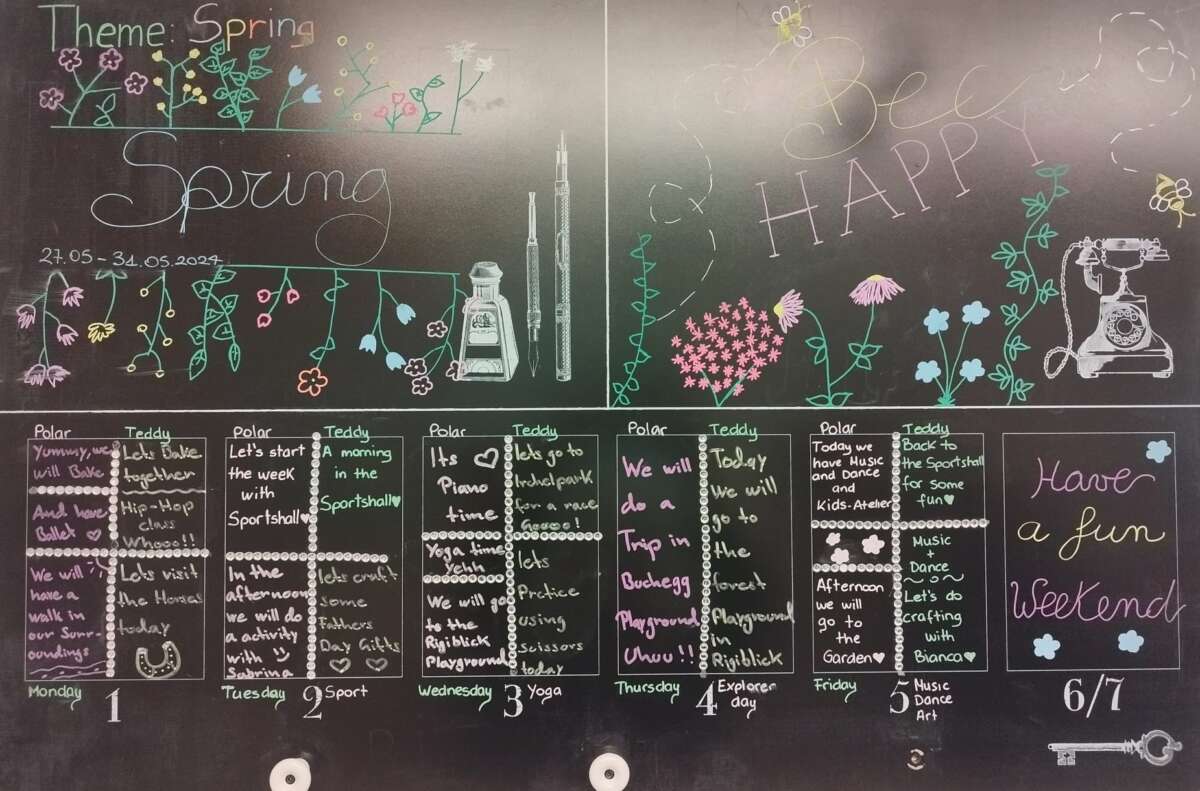 Theme: Spring
Spring
27.05 - 31.05.2024
Bee
HAPPY
Polar
Yummy, we
will Bake
And have
Ballet ♡
We will
have a
walk in
our Surr-
oundings
Teddy
Lets Bake
together
Hip-Hop
class
Whooo!!
Lets visit
the Horses
today
Monday
1
Polar
Let's start
the week
with
Sportshall♥
In the
afternoon
we will do
a activity
with
Sabrina
Teddy
A morning
in the
Sportshall♥
lets craft
some
Fathers
Day Gifts
♡ ♡
Tuesday
2
Sport
Polar
Its ♡
Piano
time
Yoga time
Yehh
We will go
to the
Rigiblick
Playground
Teddy
lets go to
Irchelpark
for a race
Goooo!
lets
Prctice
using
scissors
today
Wednesday
3
Yoga
Polar
We will
do a
Trip in
Buchegg
Playground
Uhuu!!
Teddy
Today
We will
go to
the
forest
Playground
in
Rigiblick
Thursday
4
Explorer
day
Polar
Today we
have Music
and Dance
and
Kids-Atelier
Afternoon
we will
go to
the
Garden♥
Teddy
Back to
the Sportshall
for some
fun♥
Music
+
Dance
Let's do
crafting
with
Bianca♥
Friday
5
Music
Dance
Art
Have
a fun
Weekend
6/7